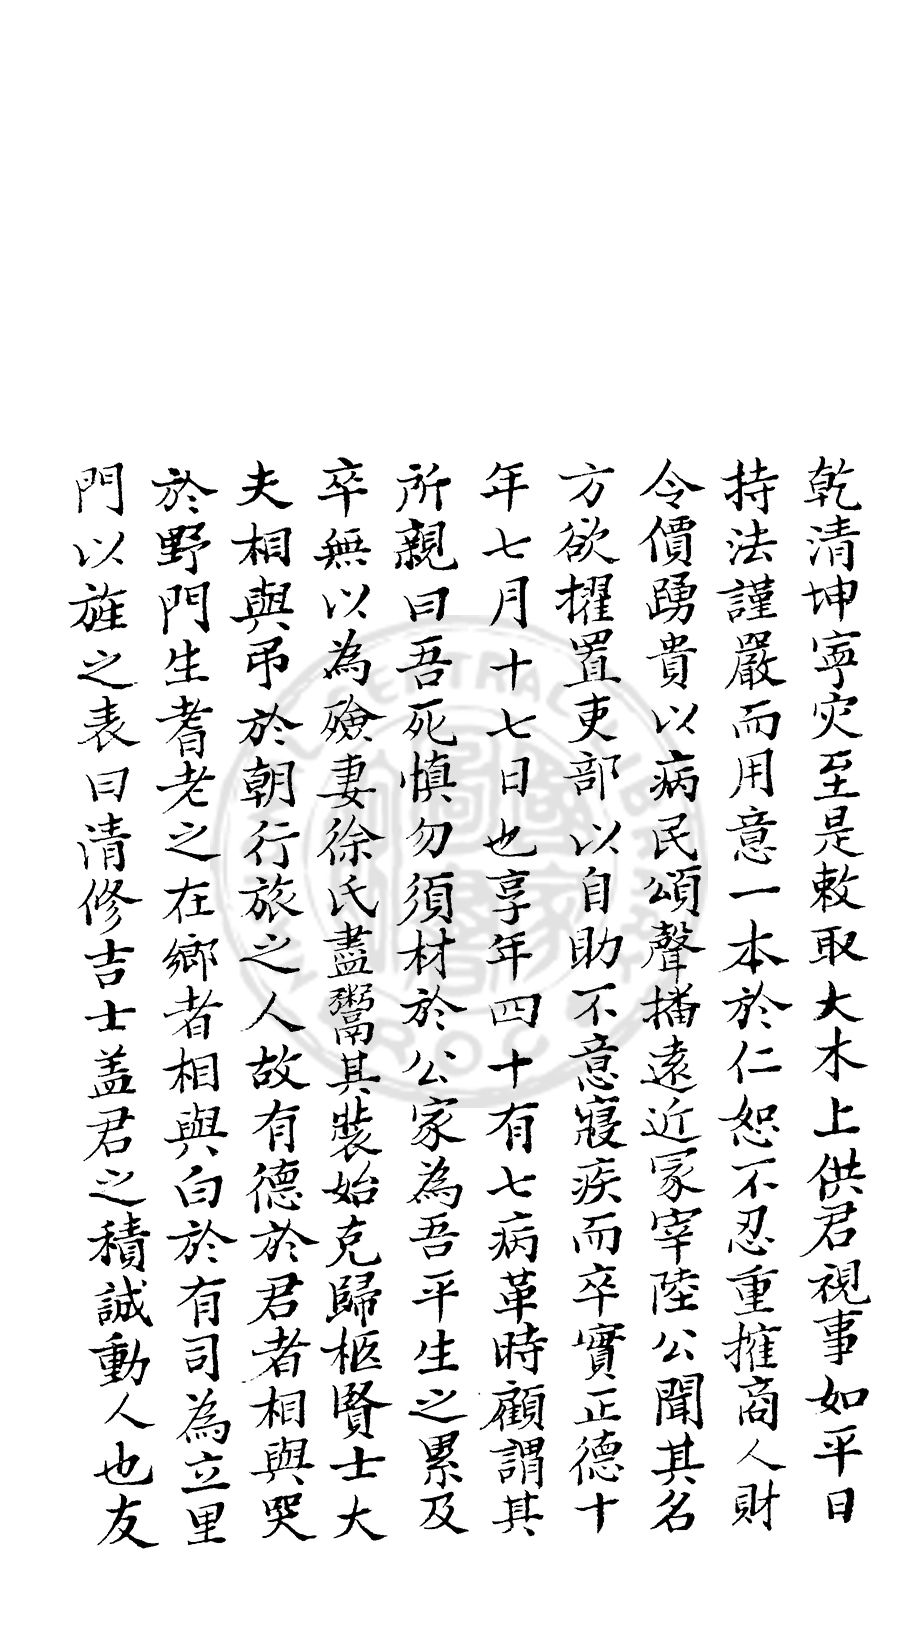 乾清坤寧灾至是敕取大木上供君視事如平日
持法謹嚴而用意一本於仁恕不忍重搉商人財
令價踴貴以病民頌聲播遠近冢宰陸公聞其名
方欲擢置吏部以自助不意寢疾而卒實正德十
年七月十七日也享年四十有七病革時顧謂其
所親曰吾死慎勿須材於公家為吾平生之累及
卒無以為殮妻徐氏盡鬻其裝始克歸柩賢士大
夫相與弔於朝行旅之人故有德於君者相與哭
於野門生耆老之在鄉者相與白於有司為立里
門以旌之表曰清修吉士盖君之積誠動人也友